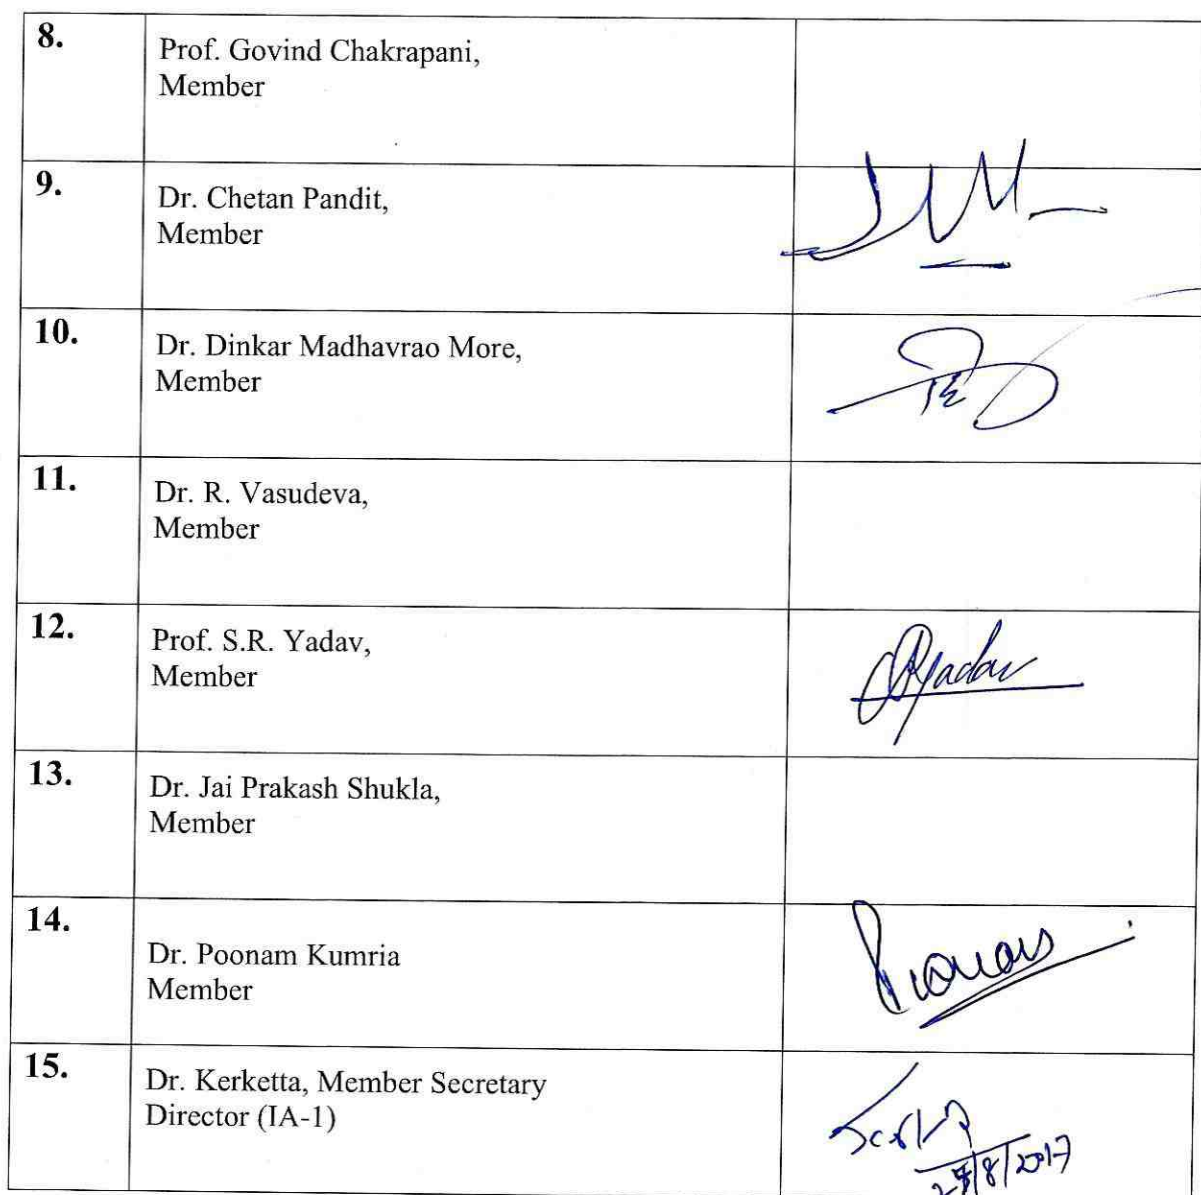 8.
Prof. Govind Chakrapani,
Member
9.
Dr. Chetan Pandit,
Member
10.
Dr. Dinkar Madhavrao More,
Member
11.
Dr. R. Vasudeva,
Member
12.
Prof. S.R. Yadav,
Member
SRYadav
13.
Dr. Jai Prakash Shukla,
Member
14.
Dr. Poonam Kumria
Member
15.
Dr. Kerketta, Member Secretary
Director (IA-1)